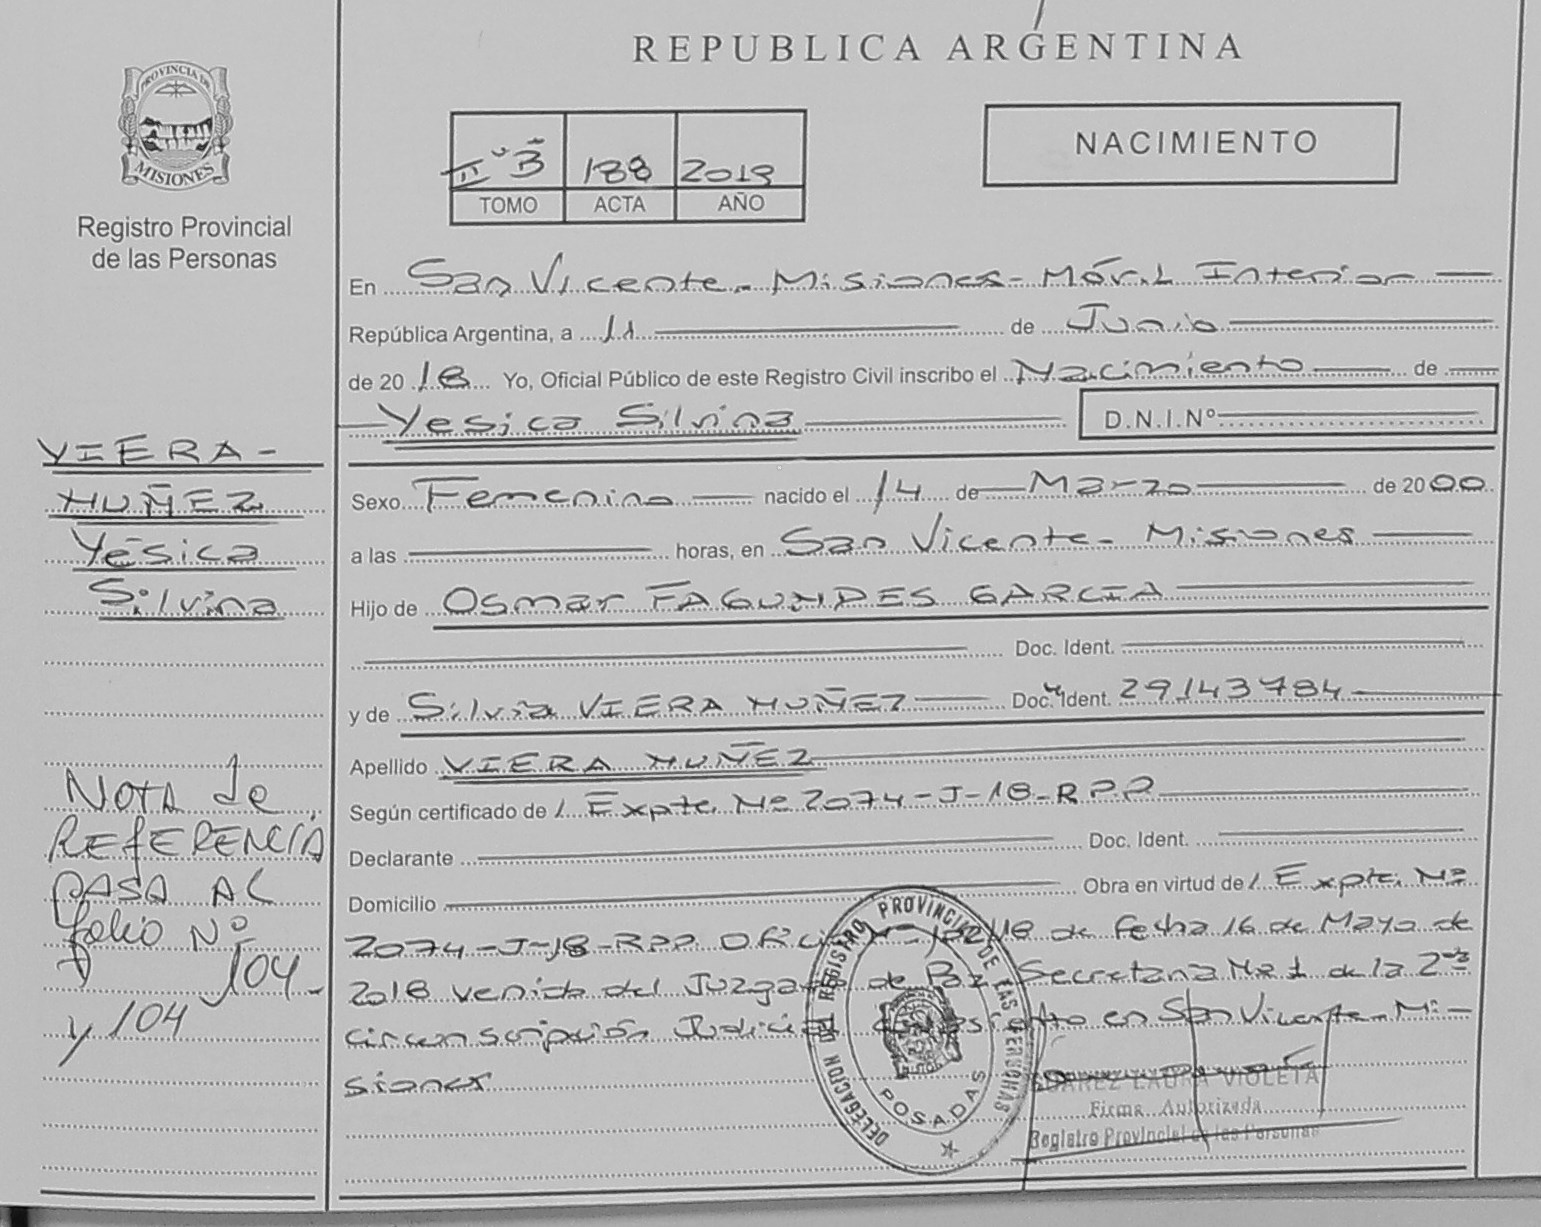 REPUBLICA ARGENTINA
PROVINCIA DE
MISIONES
Registro Provincial
de las Personas
IIº B 188 2019
TOMO ACTA AÑO
NACIMIENTO
En San Vicente - Misiones - Móvil Interior
República Argentina, a 11 de Junio
de 2018 Yo, Oficial Público de este Registro Civil inscribo el Nacimiento de
Yesica Silvina D.N.I.Nº
Sexo Femenino nacido el 14 de Marzo de 2000
a las horas, en San Vicente - Misiones
Hijo de Osmar FAGUNDES GARCIA
Doc. Ident.
y de Silvia VIERA MUÑEZ Doc. Ident. 29143784
Apellido VIERA MUÑEZ
Según certificado de Expte. Nº 2074-J-18-RPP
Declarante Doc. Ident.
Domicilio Obra en virtud de Expte. Nº
2074-J-18-RPP Oficio de Fecha 16 de Mayo de
2018 venido del Juzgado de Paz Secretaria Nº 1 de la 2da
circunscripción Judicial en San Vicente - Mi-
siones
VIERA -
MUÑEZ
Yésica
Silvina
NOTA de
REFERENCIA
PASA AL
folio Nº
104
y 104
DELEGACION DEL REGISTRO PROVINCIAL DE LAS PERSONAS
POSADAS
SUAREZ LAURA VIOLETA
Firma Autorizada
Registro Provincial de las Personas